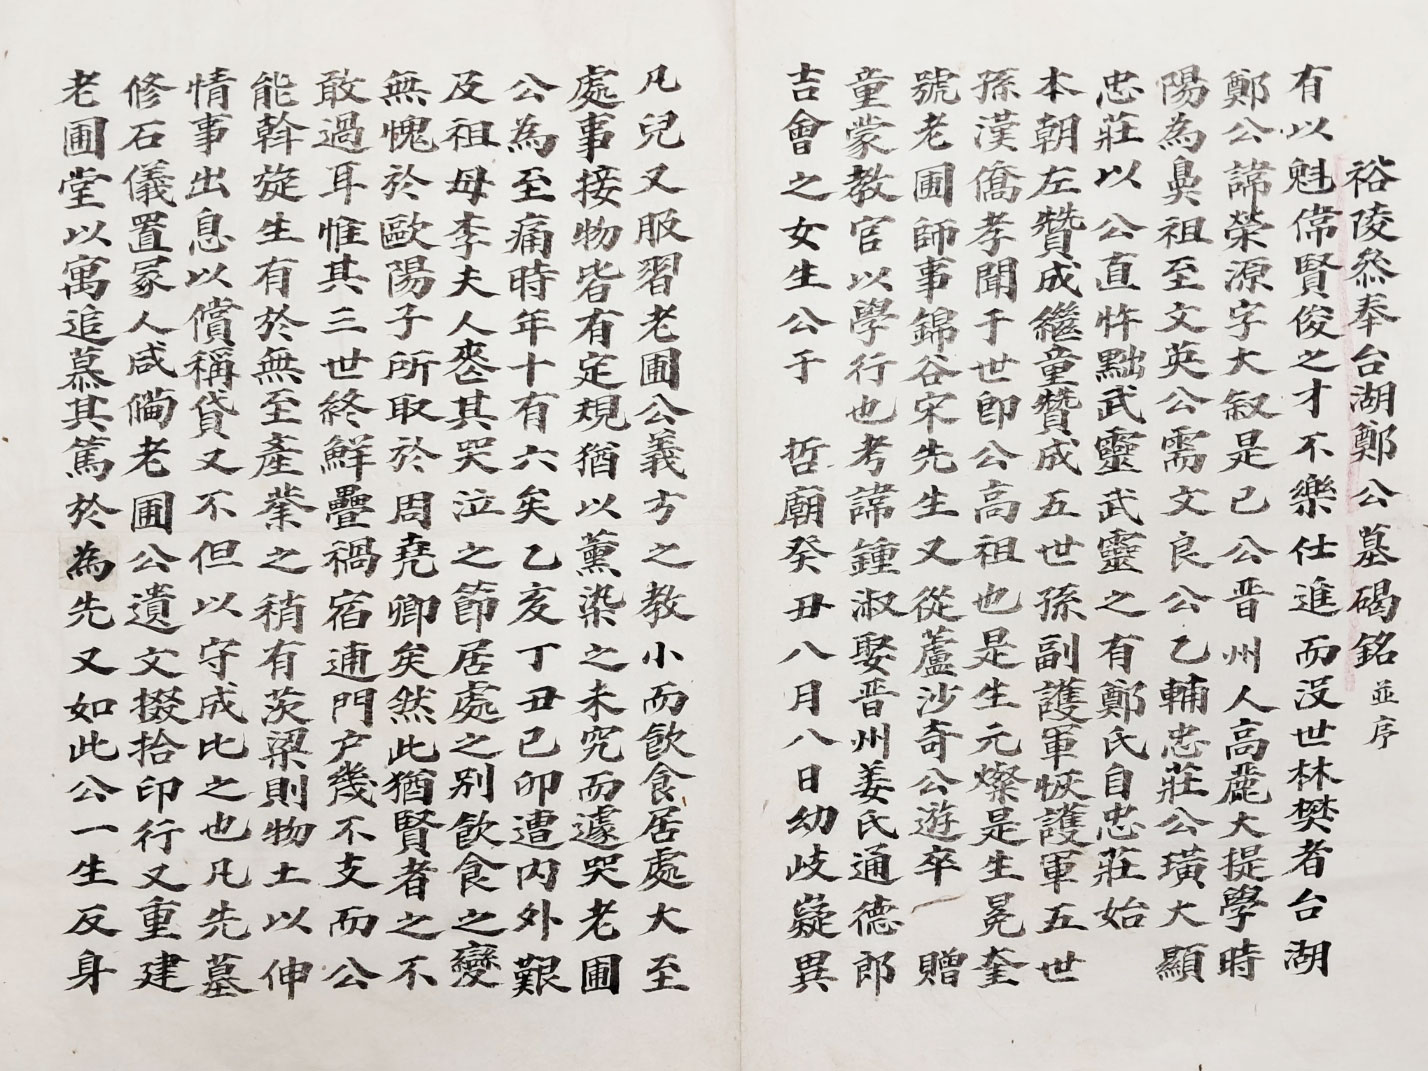 裕陵叅奉台湖鄭公墓碣銘 並序
有以魁偉賢俊之才不樂仕進而沒世林樊者台湖
鄭公諱榮源字大叙是已公晋州人高麗大提學時
陽為鼻祖至文英公需文良公乙輔忠莊公璜大顯
忠莊以公直忤黜武靈武靈之有鄭氏自忠莊始
本朝左贊成繼童贊成五世孫副護軍恢護軍五世
孫漢僑孝聞于世卽公高祖也是生元燦是生冕奎
號老圃師事錦谷宋先生又從蘆沙奇公遊卒 贈
童蒙教官以學行也考諱鍾淑娶晋州姜氏通德郎
吉會之女生公于 哲廟癸丑八月八日幼岐嶷異
凡兒又服習老圃公義方之教小而飮食居處大至
處事接物皆有定規猶以薰染之未究而遽哭老圃
公為至痛時年十有六矣乙亥丁丑己卯遭內外艱
及祖母李夫人喪其哭泣之節居處之别飮食之變
無愧於歐陽子所取於周堯卿矣然此猶賢者之不
敢過耳惟其三世終鮮疊禍宿逋門户幾不支而公
能斡旋生有於無至產業之稍有茨梁則物土以伸
情事出息以償稱貸又不但以守成比之也凡先墓
修石儀置冢人咸倣老圃公遺文掇拾印行又重建
老圃堂以寓追慕其篤於為先又如此公一生反身